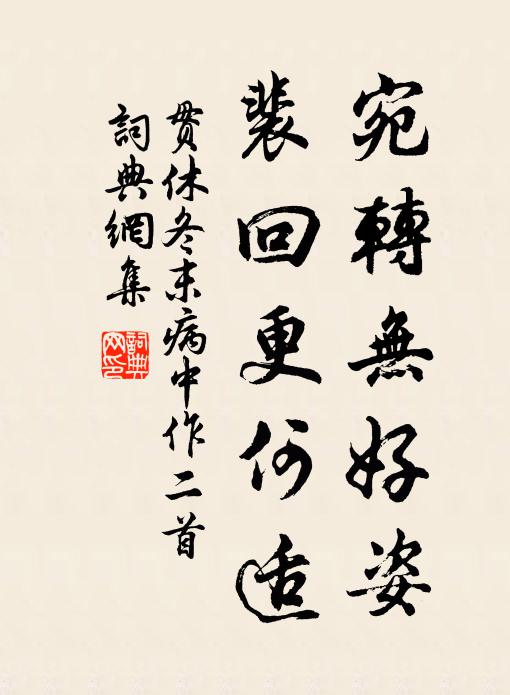 宛轉無好姿
裴回更何适
贯休冬末病中作二首
詞典網集
詞典网印